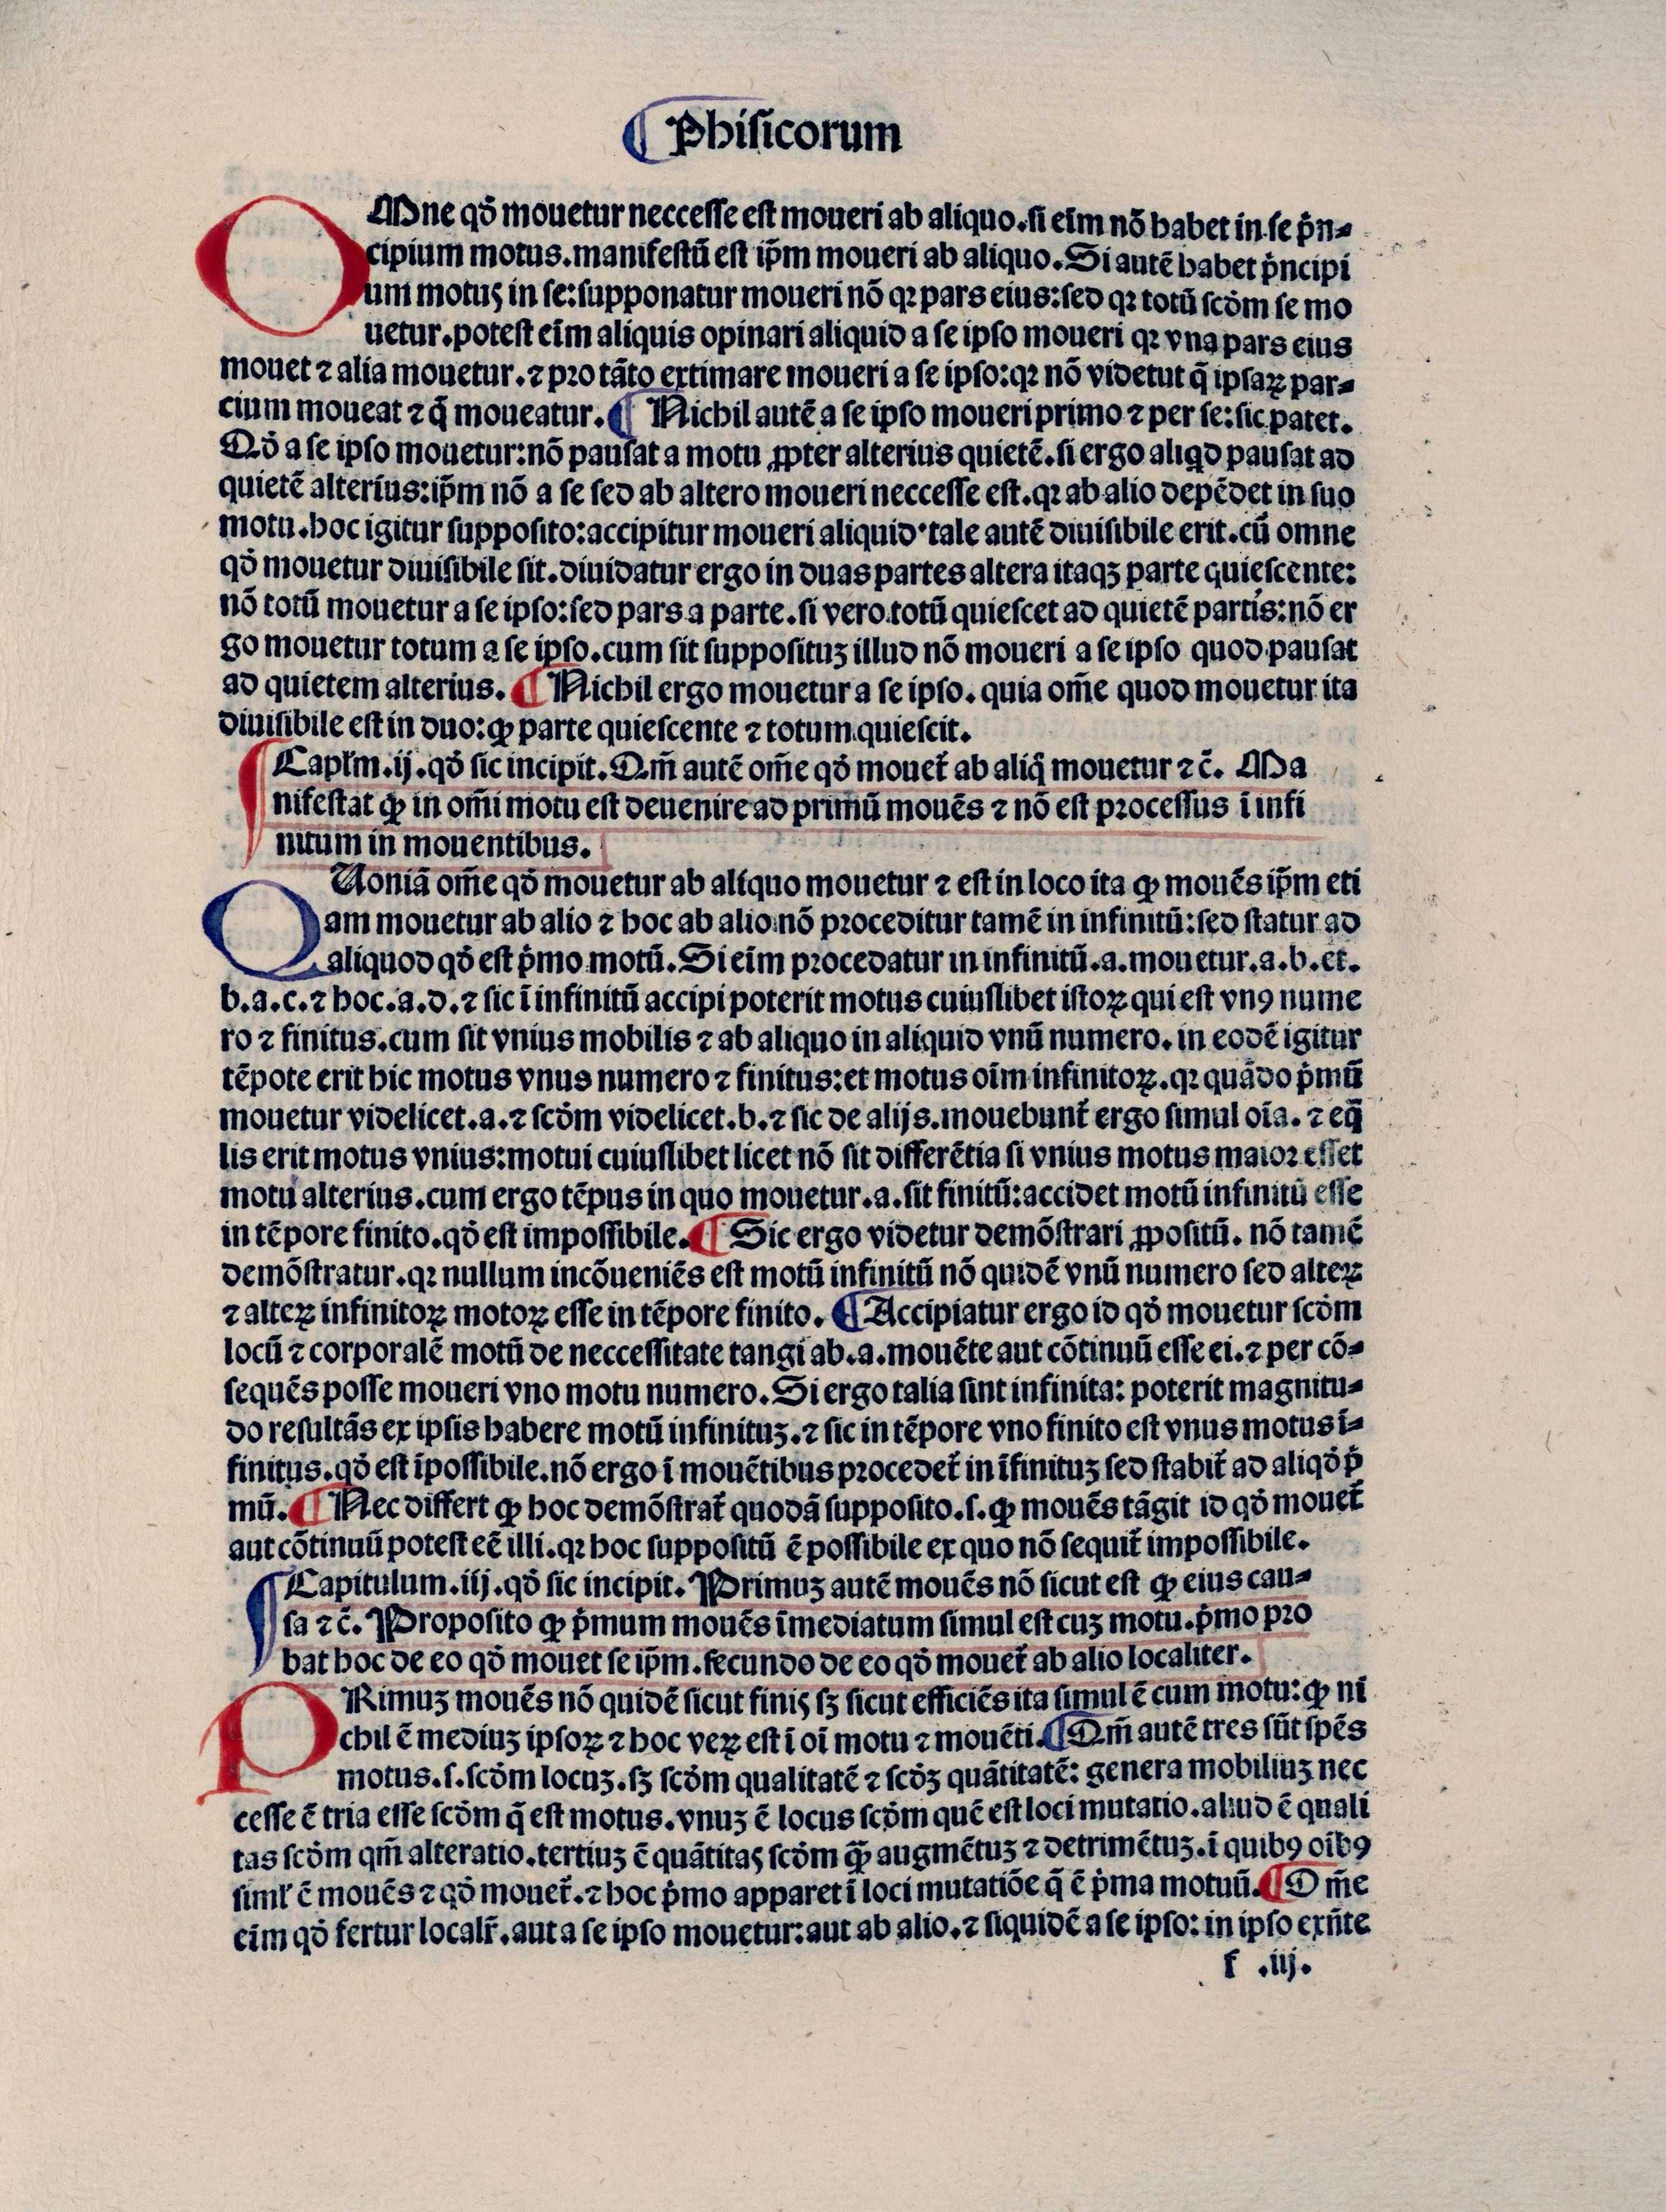 ¶ Phisicorum
OMne qḋ mouetur neccesse est moueri ab aliquo.si eīm nō habet in se p̄n-
cipium motus.manifestū est ip̄m moueri ab aliquo.Si autē habet p̄ncipi
um motuꝫ in se:supponatur moueri nō qꝛ pars eius:sed qꝛ totū scḋm se mo
uetur.potest eīm aliquis opinari aliquid a se ipso moueri qꝛ vna pars eius
mouet ⁊ alia mouetur.⁊ pro tāto extimare moueri a se ipso:qꝛ nō videtut q̄ ipsaꝝ par-
cium moueat ⁊ q̄ moueatur.¶ Nichil autē a se ipso moueri primo ⁊ per se:sic patet.
Qḋ a se ipso mouetur:nō pausat a motu ꝓpter alterius quietē.si ergo aliqd pausat ad
quietē alterius:ip̄m nō a se sed ab altero moueri neccesse est.qꝛ ab alio depēdet in suo
motu.hoc igitur supposito:accipitur moueri aliquid·tale autē diuisibile erit.cū omne
qḋ mouetur diuisibile sit.diuidatur ergo in duas partes altera itaqꝫ parte quiescente:
nō totū mouetur a se ipso:sed pars a parte.si vero totū quiescet ad quietē partis:nō er
go mouetur totum a se ipso.cum sit supposituꝫ illud nō moueri a se ipso quod pausat
ad quietem alterius.¶ Nichil ergo mouetur a se ipso. quia om̄e quod mouetur ita
diuisibile est in duo:ꝙ parte quiescente ⁊ totum quiescit.
¶ Capl'm.ij.qḋ sic incipit.Qm̄ autē om̄e qḋ mouet̄ ab aliq̄ mouetur ⁊ c̄. Ma
nifestat ꝙ in om̄i motu est deuenire ad primū mouēs ⁊ nō est processus ī infi
nitum in mouentibus.
QUoniā om̄e qḋ mouetur ab aliquo mouetur ⁊ est in loco ita ꝙ mouēs ip̄m eti
am mouetur ab alio ⁊ hoc ab alio nō proceditur tamē in infinitū:sed statur ad
aliquod qḋ est p̄mo motū.Si eīm procedatur in infinitū.a.mouetur.a.b.et.
b.a.c.⁊ hoc.a.d.⁊ sic ī infinitū accipi poterit motus cuiuslibet istoꝝ qui est vnꝰ nume
ro ⁊ finitus.cum sit vnius mobilis ⁊ ab aliquo in aliquid vnū numero. in eodē igitur
tēpote erit hic motus vnus numero ⁊ finitus:et motus oīm infinitoꝝ.qꝛ quādo p̄mū
mouetur videlicet.a.⁊ scḋm videlicet.b.⁊ sic de alijs.mouebunt̄ ergo simul oīa. ⁊ eq̄
lis erit motus vnius:motui cuiuslibet licet nō sit differētia si vnius motus maior esset
motu alterius.cum ergo tēpus in quo mouetur.a.sit finitū:accidet motū infinitū esse
in tēpore finito.qḋ est impossibile.¶ Sic ergo videtur demōstrari ꝓpositū. nō tamē
demōstratur.qꝛ nullum incōueniēs est motū infinitū nō quidē vnū numero sed alteꝝ
⁊ alteꝝ infinitoꝝ motoꝝ esse in tēpore finito. ¶ Accipiatur ergo id qḋ mouetur scḋm
locū ⁊ corporalē motū de neccessitate tangi ab.a.mouēte aut cōtinuū esse ei.⁊ per cō-
sequēs posse moueri vno motu numero.Si ergo talia sint infinita: poterit magnitu-
do resultās ex ipsis habere motū infinituꝫ.⁊ sic in tēpore vno finito est vnus motus ī-
finitus.qḋ est īpossibile.nō ergo ī mouētibus procedet̄ in īfinituꝫ sed stabit̄ ad aliqḋ p̄
mū.¶ Nec differt ꝙ hoc demōstrat̄ quodā supposito.s.ꝙ mouēs tāgit id qḋ mouet̄
aut cōtinuū potest eē illi.qꝛ hoc suppositū ē possibile ex quo nō sequit̄ impossibile.
¶ Capitulum.iij.qḋ sic incipit. Primuꝫ autē mouēs nō sicut est ꝙ eius cau-
sa ⁊ c̄. Proposito ꝙ p̄mum mouēs īmediatum simul est cuꝫ motu.p̄mo pro
bat hoc de eo qḋ mouet se ip̄m.secundo de eo qḋ mouet̄ ab alio localiter.
PRimuꝫ mouēs nō quidē sicut finiꝫ sꝫ sicut efficiēs ita simul ē cum motu:ꝙ ni
chil ē mediuꝫ ipsoꝝ ⁊ hoc veꝝ est ī oī motu ⁊ mouēti.¶ Qm̄ autē tres sūt spēs
motus.s.scḋm locuꝫ.sꝫ scḋm qualitatē ⁊ scḋꝫ quātitatē: genera mobiliuꝫ nec
cesse ē tria esse scḋm q̄ est motus.vnuꝫ ē locus scḋm quē est loci mutatio.aliud ē quali
tas scḋm qm̄ alteratio.tertiuꝫ ē quātitaꝫ scḋm quā augmētuꝫ ⁊ detrimētuꝫ.ī quibꝰ oībꝰ
siml' ē mouēs ⁊ qḋ mouet̄.⁊ hoc p̄mo apparet ī loci mutatiōe q̄ ē p̄ma motuū.¶ Om̄e
eīm qḋ fertur localr̄.aut a se ipso mouetur:aut ab alio.⁊ siquidē a se ipso: in ipso exn̄te
f .iij.